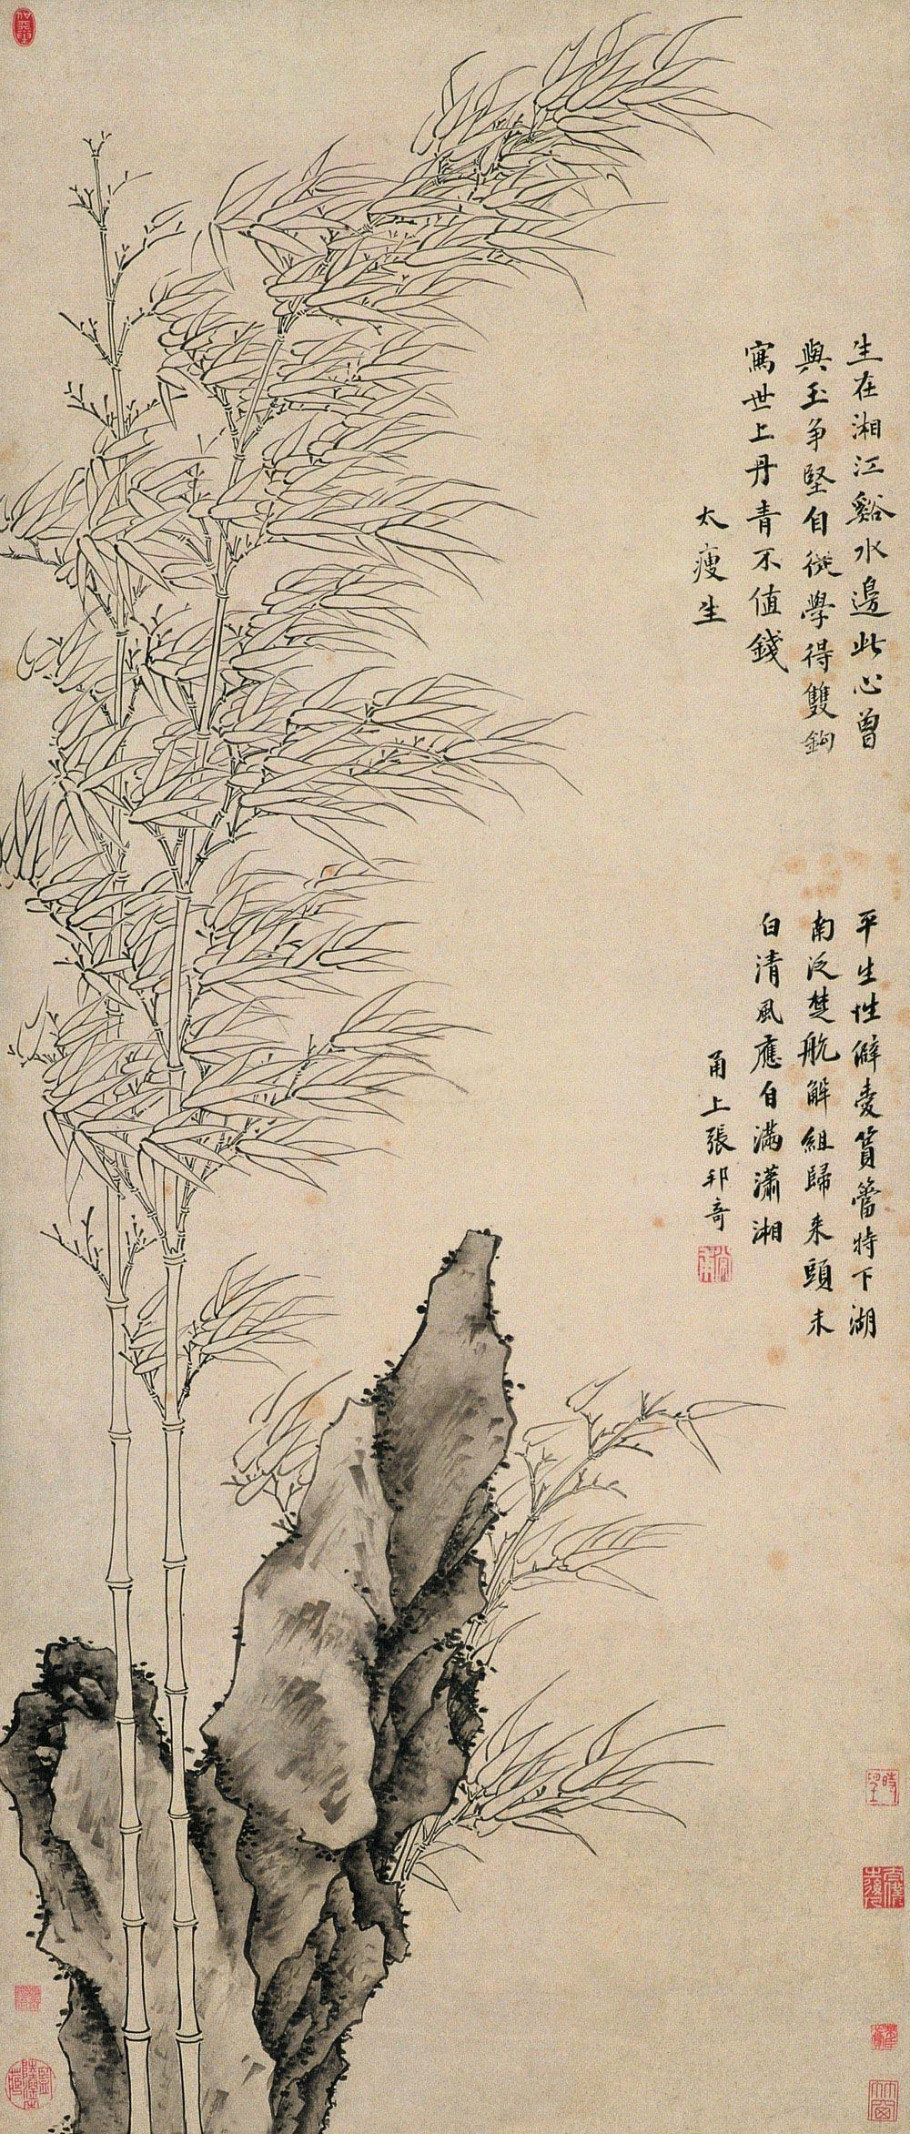 生在湘江谿水邊此心曾
與玉爭堅自從學得雙鉤
寫世上丹青不值錢
太瘦生
平生性僻愛篔簹特下湖
南泛楚航解組歸來頭未
白清風應自滿瀟湘
甬上張邦奇